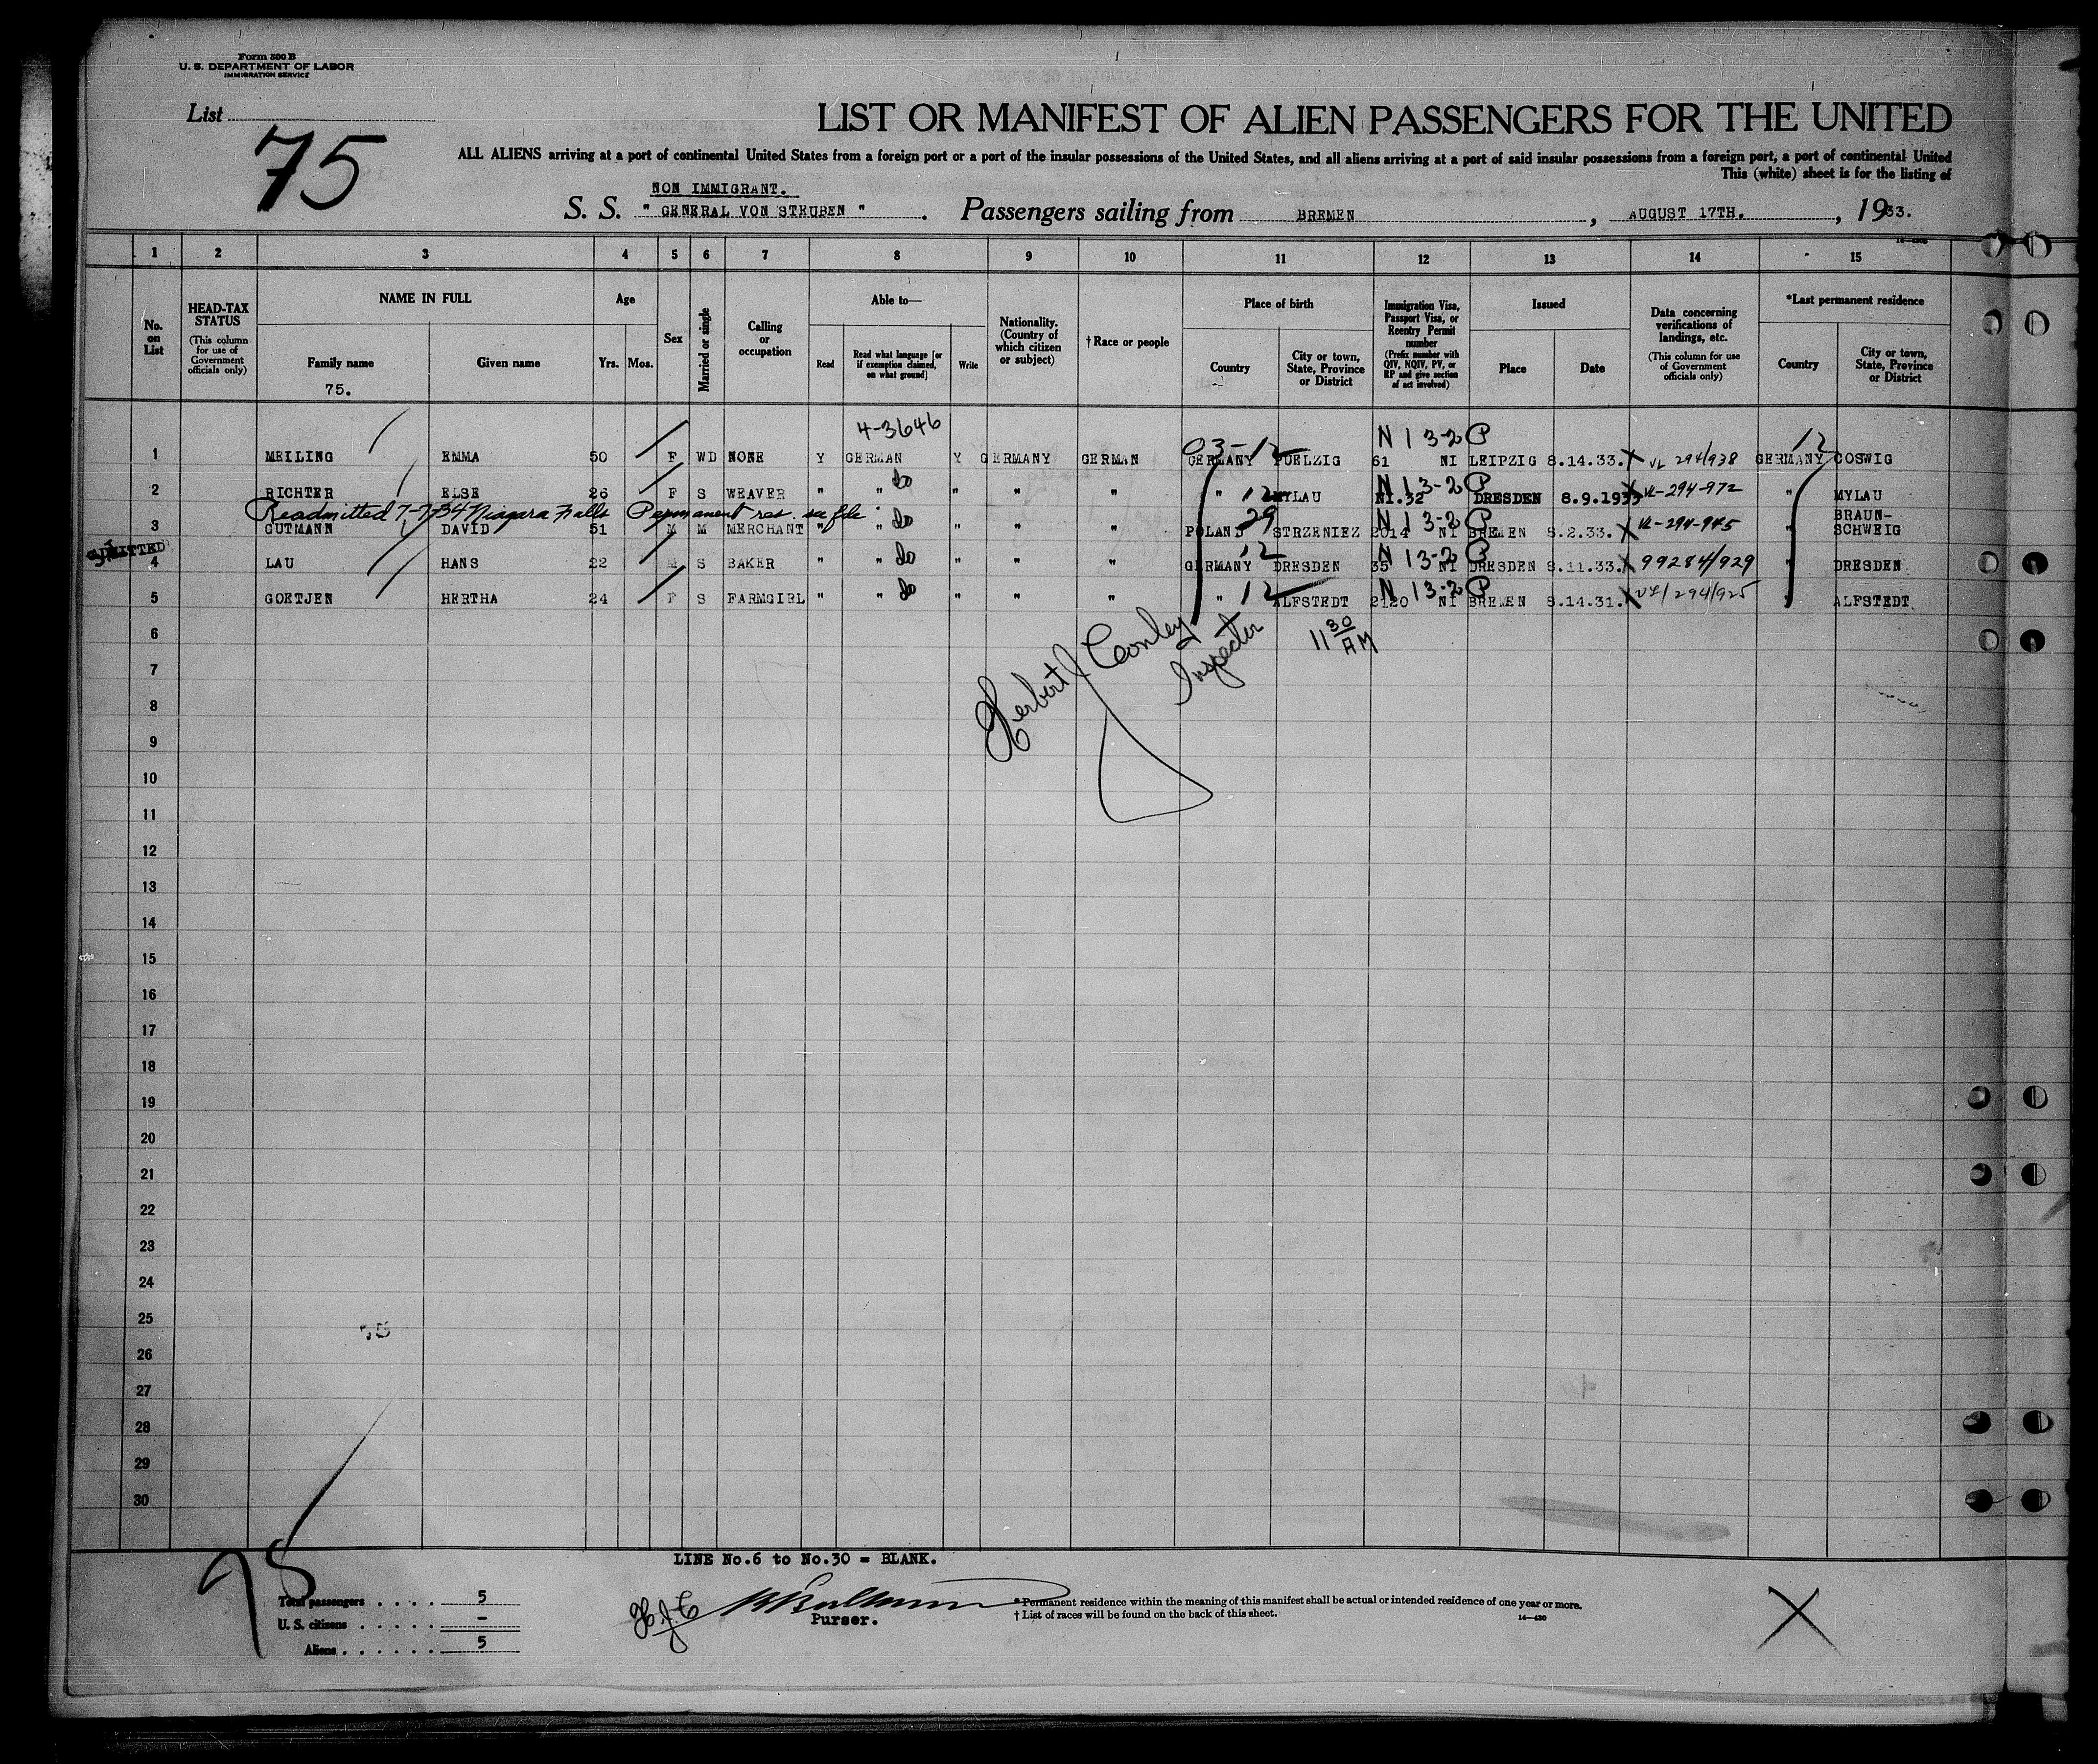 Form 500 B
U. S. DEPARTMENT OF LABOR
IMMIGRATION SERVICE
List
75
LIST OR MANIFEST OF ALIEN PASSENGERS FOR THE UNITED
ALL ALIENS arriving at a port of continental United States from a foreign port or a port of the insular possessions of the United States, and all aliens arriving at a port of said insular possessions from a foreign port, a port of continental United
This (white) sheet is for the listing of
NON IMMIGRANT.
S. S. " GENERAL VON STEUBEN ". Passengers sailing from BREMEN, AUGUST 17TH., 1933.
1 2 3 4 5 6 7 8 9 10 11 12 13 14 15
No. on List
HEAD-TAX STATUS (This column for use of Government officials only)
NAME IN FULL
Family name
75.
Given name
Age
Yrs. Mos.
Sex
Married or single
Calling or occupation
Able to—
Read
Read what language [or if exemption claimed, on what ground]
Write
Nationality. (Country of which citizen or subject)
†Race or people
Place of birth
Country
City or town, State, Province or District
Immigration Visa, Passport Visa, or Reentry Permit number (Prefix number with QIV, NQIV, PV, or RP and give section of act involved)
Issued
Place
Date
Data concerning verifications of landings, etc. (This column for use of Government officials only)
*Last permanent residence
Country
City or town, State, Province or District
4-3646 03-12 N 13-2 P 12
1 MEILING EMMA 50 F WD NONE Y GERMAN Y GERMANY GERMAN GERMANY PUELZIG 61 NI LEIPZIG 8.14.33. X VL 294/938 GERMANY COSWIG
do 12 N 13-2 P
2 RICHTER ELSE 26 F S WEAVER " " " " " " MYLAU NI.32 DRESDEN 8.9.1933 X VL-294-972 " MYLAU
Readmitted 7-7-34 Niagara Falls Permanent res. su file
do 29 N 13-2 P
3 GUTMANN DAVID 51 M M MERCHANT " " " " " POLAND STRZENIEZ 2014 NI BREMEN 8.2.33. X VL-294-945 " BRAUN-SCHWEIG
ADMITTED
do 12 N 13-2 P
4 LAU HANS 22 M S BAKER " " " " " GERMANY DRESDEN 35 NI DRESDEN 8.11.33. X 99284/929 " DRESDEN
do 12 N 13-2 P
5 GOETJEN HERTHA 24 F S FARMGIRL " " " " " " ALFSTEDT 2120 NI BREMEN 8.14.31. X VL/294/925 " ALFSTEDT
6
Herbert J Conley
Inspector
11 30 AM
7
8
9
10
11
12
13
14
15
16
17
18
19
20
21
22
23
24
25
26
27
28
29
30
75
LINE No.6 to No.30 = BLANK.
Total passengers . . . . 5
U. S. citizens . . . . . –
Aliens . . . . . . 5
H.J.C
Purser.
* Permanent residence within the meaning of this manifest shall be actual or intended residence of one year or more.
† List of races will be found on the back of this sheet.
14—430
X